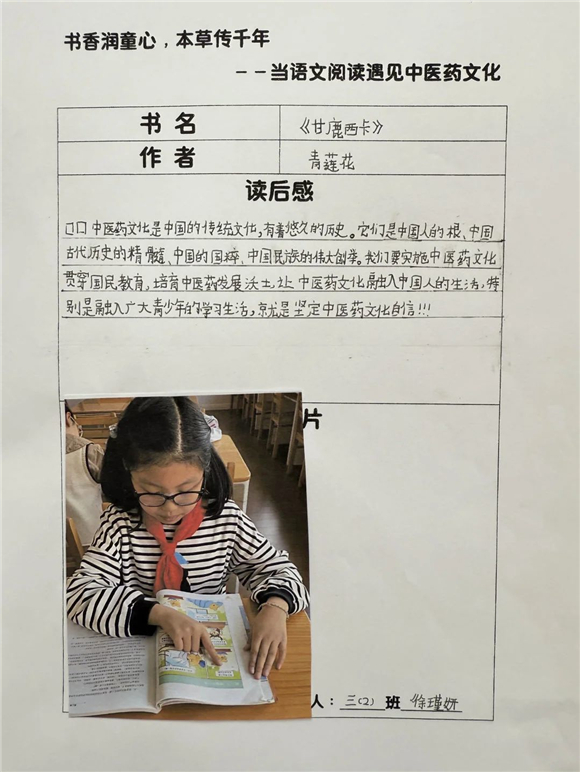 书香润童心，本草传千年
——当语文阅读遇见中医药文化
书名 《甘鹿西卡》
作者 青莲花
读后感
口口中医药文化是中国的传统文化，有着悠久的历史。它们是中国人的根、中国
古代历史的精髓、中国的国粹、中国民族的伟大创举。我们要实施中医药文化
贯穿国民教育，培育中医药发展沃土，让中医药文化融入中国人的生活，特
别是融入广大青少年的学习生活，就是坚定中医药文化自信!!!
片
人：三(2)班 徐瑾妍